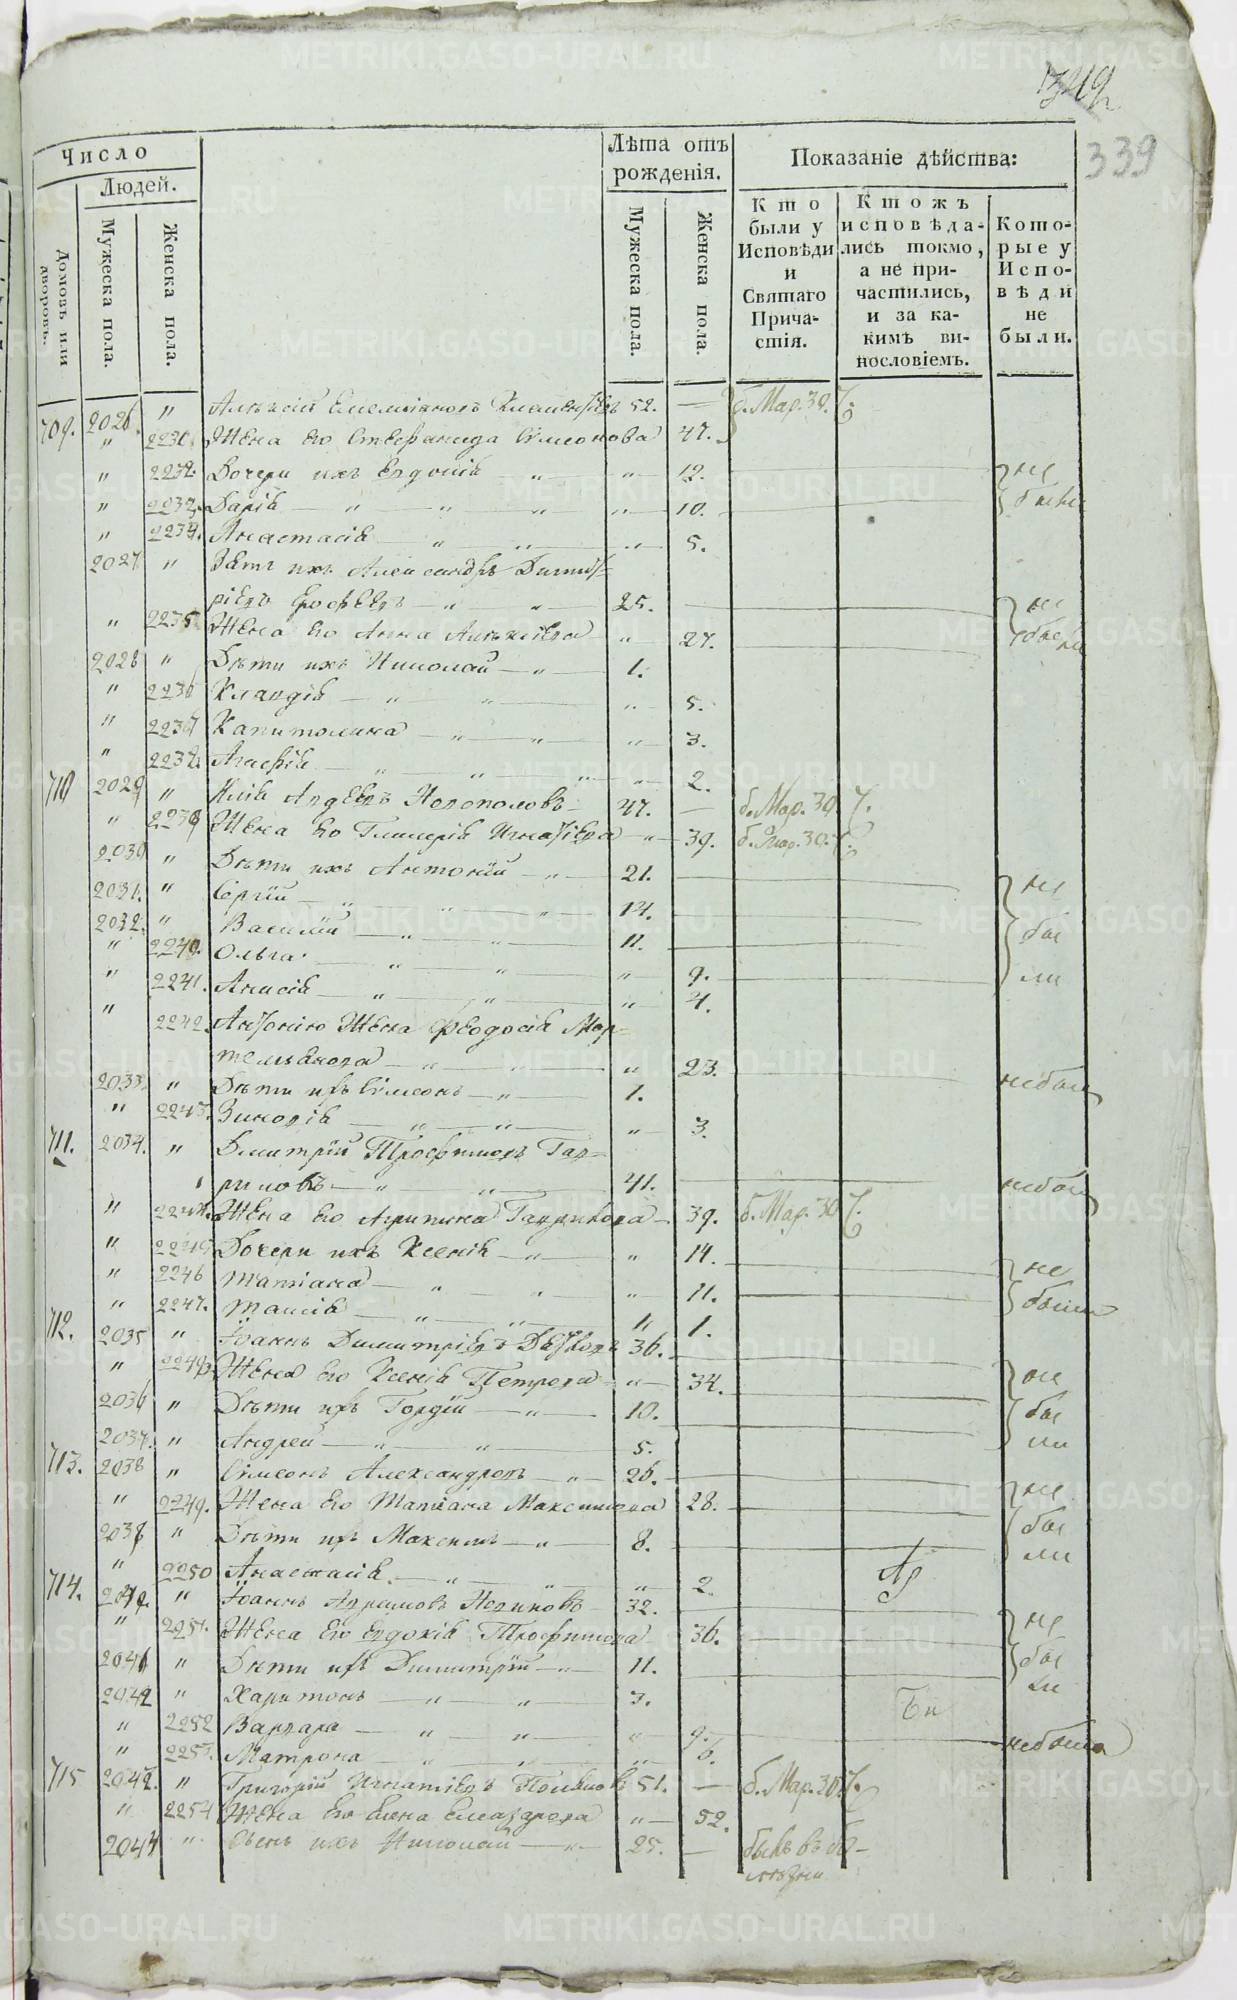 339
Число
Людей.
Домовъ или дворовъ.
Мужеска пола.
Женска пола.
Лѣта отъ рожденія.
Мужеска пола.
Женска пола.
Показаніе дѣйства:
Кто были у Исповѣди и Святаго Причастія.
Ктожъ исповѣдались токмо, а не причастились, и за какимъ винословіемъ.
Которые у Исповѣди не были.
709. 2026 " Алексій Емеліановъ 52. — б. Мар. 30.
" Жена его Стефанида Сѵмеонова 47.
" 2232. Дочери ихъ Евдокія " " 12. не
" Дарія " " " " 10. были
" Анастасія " " " 5.
2027 " Зять ихъ Александръ Димит=
ріевъ Ерофѣевъ " " 25. не
" 2235 Жена его Анна Алексіева " 27. были
2028 " Дѣти ихъ Николай " 1.
" 2236 Клавдія " " " 5.
" 2237 Капитолина " " " 3.
" Агафія " " " " 2.
710 2029 " Илія Авдѣевъ 47. — б. Мар. 30
" Жена его Гликерія Игнатіева " 39. б. Мар. 30.
2030 " Дѣти ихъ Антоній " 21. не
2031. " Сергій " " " 14. бы
2032. " Василій " " 11. ли
" 2240. Ольга " " " 9.
" 2241. Анисія " " " 4.
" 2242. Антонію Жена Феодосія Мар=
темьянова " " " 23. не был
2033. " Дѣти ихъ Сѵмеонъ " 1.
" 2243. Зиновія " " " 3.
711. 2034. " Димитрій Трофимовъ Гав=
риловъ " " 41. не был
" Жена его Агрипина Гаврилова 39. б. Мар. 30
" Дочери ихъ Ксенія " " 14. не
" 2246 Татіана " " " 11. были
" 2247. Таисія " " " 1.
712. 2035 " Іоаннъ Димитріевъ 36. не
" Жена его Ксенія Петрова " 34. бы
2036 " Дѣти ихъ Гордій " 10. ли
2037. " Андрей " " 5.
713. 2038 " Сѵмеонъ Александровъ " 26. не
" 2249. Жена его Татіана Максимова 28. бы
" Дѣти ихъ Максимъ " 8. ли
" 2250 Анастасія " " " 2.
714. " Іоаннъ 32. не
" 2251. Жена его Евдокія Трофимова 36. бы
2041 " Дѣти ихъ Димитрій " 11. ли
2042 " Харитонъ " " 3.
" 2252 Варвара " " " 9. не была
" 2253. Матрона " " " 6.
715 " Григорій Игнатіевъ 51. — б. Мар. 30
" 2254 Жена его Елена Елеазарова " 52.
2044 " Сынъ ихъ Николай " 25. — былъ въ бо-
лѣзни